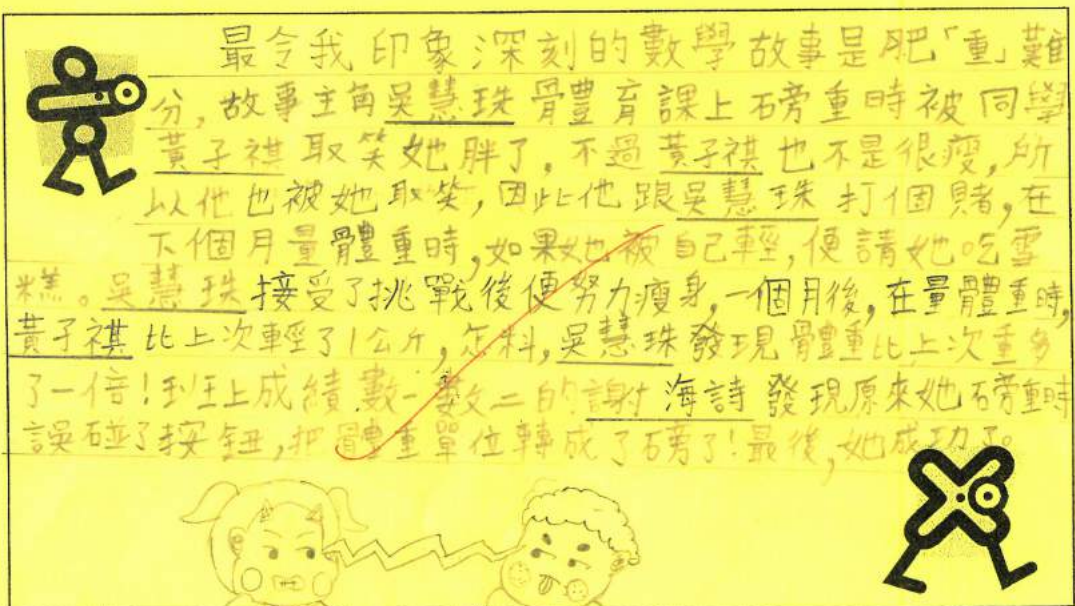 最令我印象深刻的數學故事是肥「重」難
分,故事主角吳慧珠體育課上磅重時被同學
黃子祺取笑她胖了。不過黃子祺也不是很瘦,所
以他也被她取笑,因此他跟吳慧珠打個賭,在
下個月量體重時,如果她被自己輕,便請她吃雪
糕。吳慧珠接受了挑戰後便努力瘦身,一個月後,在量體重時,
黃子祺比上次輕了1公斤,怎料,吳慧珠發現體重比上次重多
了一倍!班上成績數一數二的謝海詩發現原來她磅重時
誤碰了按鈕,把體重單位轉成了磅了!最後,她成功了。